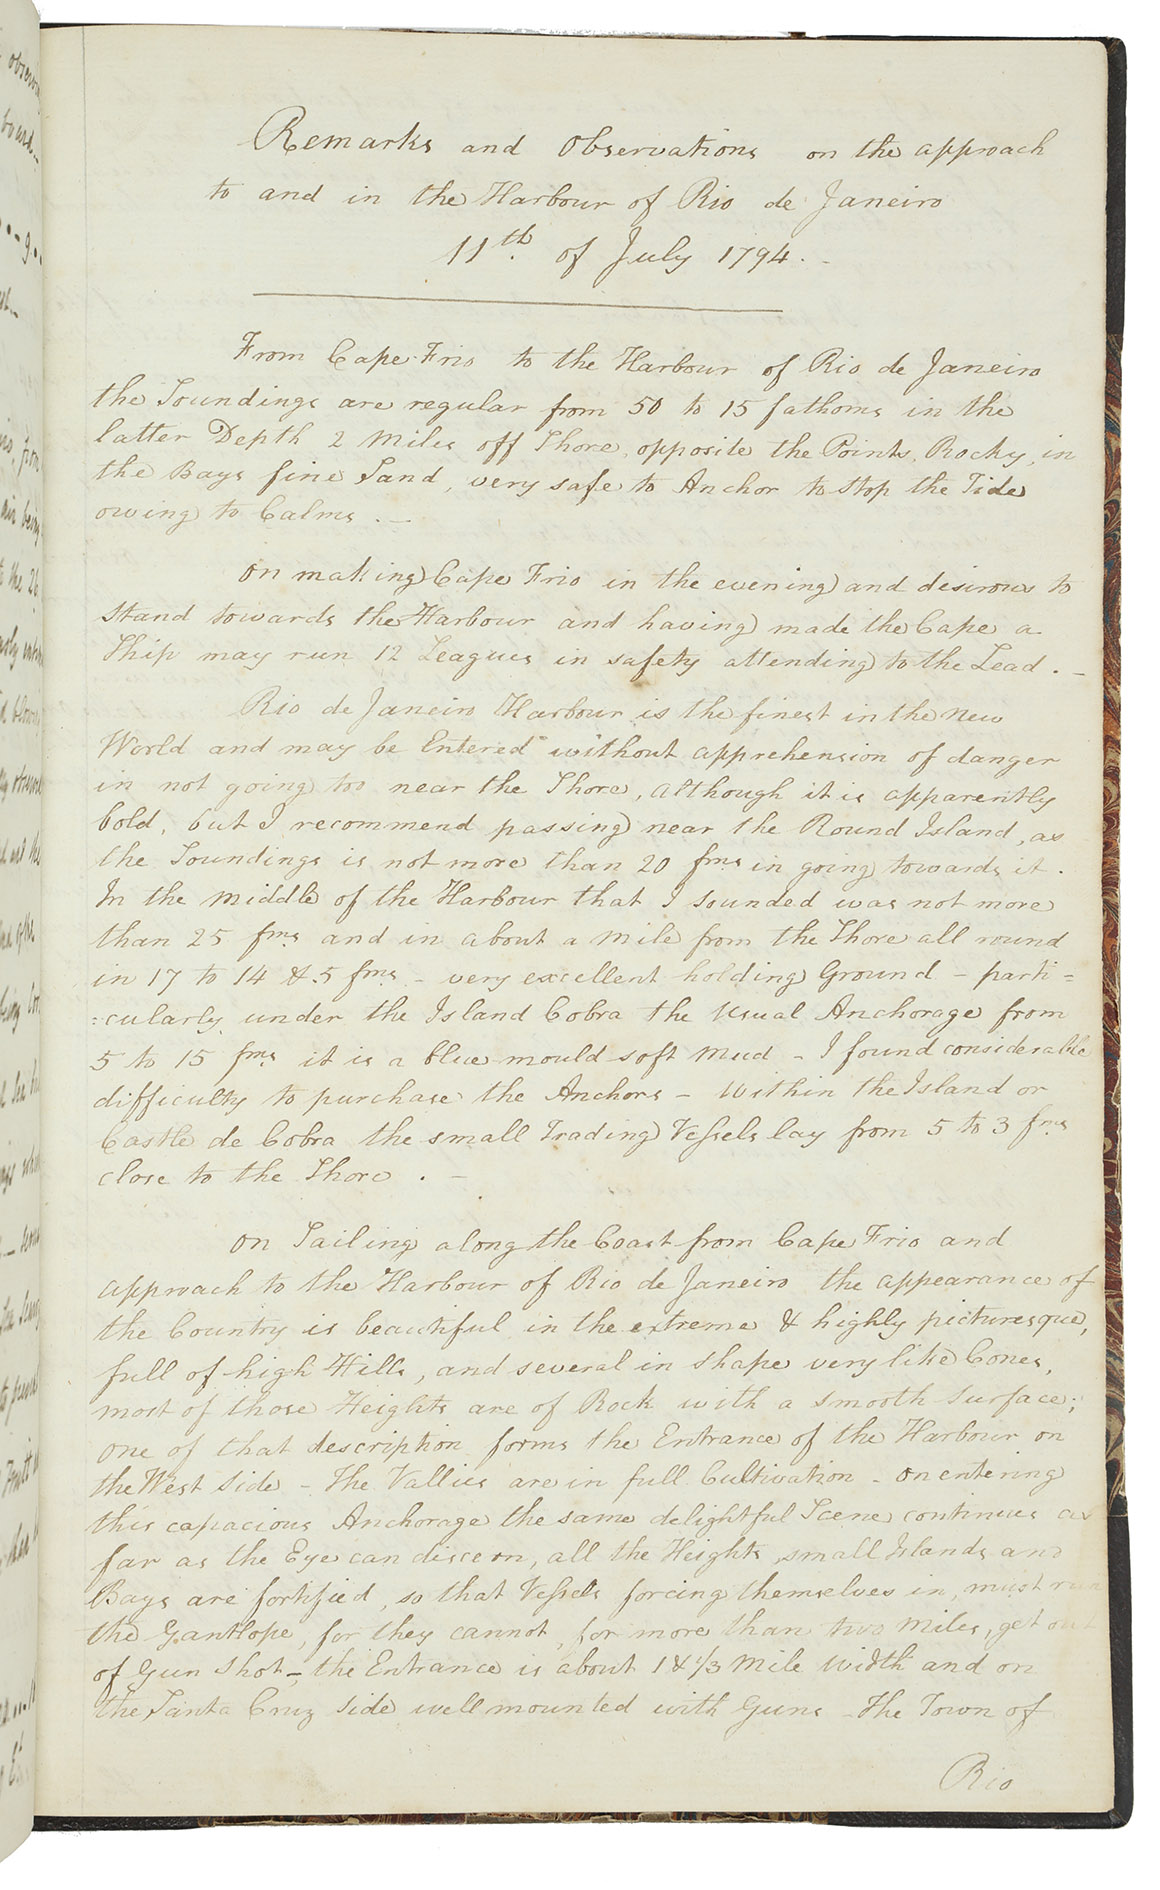 Remarks and Observations on the approach
to and in the Harbour of Rio de Janeiro
11th. of July 1794.
From Cape Frio to the Harbour of Rio de Janeiro
the Soundings are regular from 50 to 15 fathoms in the
latter Depth 2 Miles off Shore, opposite the Points, Rocky, in
the Bays fine Sand, very safe to Anchor to stop the Tide
owing to Calms. —
On making Cape Frio in the evening and desirous to
stand towards the Harbour and having made the Cape a
Ship may run 12 Leagues in safety attending to the Lead. —
Rio de Janeiro Harbour is the finest in the New
World and may be Entered without apprehension of danger
in not going too near the Shore, although it is apparently
bold, but I recommend passing near the Round Island, as
the Soundings is not more than 20 fms in going towards it.
In the Middle of the Harbour that I sounded was not more
than 25 fms and in about a Mile from the Shore all round
in 17 to 14 & 5 fms – very excellent holding Ground – parti=
=cularly under the Island Cobra the usual Anchorage from
5 to 15 fms it is a blue mould soft Mud – I found considerable
difficulty to purchase the Anchors – Within the Island or
Castle de Cobra the small Trading Vessels lay from 5 to 3 fms
close to the Shore. –
On Sailing along the Coast from Cape Frio and
approach to the Harbour of Rio de Janeiro the appearance of
the Country is beautiful in the extreme & highly picturesque,
full of high Hills, and several in shape very like Cones,
most of those Heights are of Rock with a smooth surface;
one of that description forms the Entrance of the Harbour on
the West Side – The Vallies are in full Cultivation – On entering
this capacious Anchorage the same delightful Scene continues as
far as the Eye can discern, all the Heights, small Islands and
Bays are fortified, so that Vessels forcing themselves in, must run
the Gantlope, for they cannot, for more than two Miles, get out
of Gun Shot –, the Entrance is about 1 & 1/3 Mile width and on
the Santa Cruz Side well mounted with Guns – The Town of
Rio